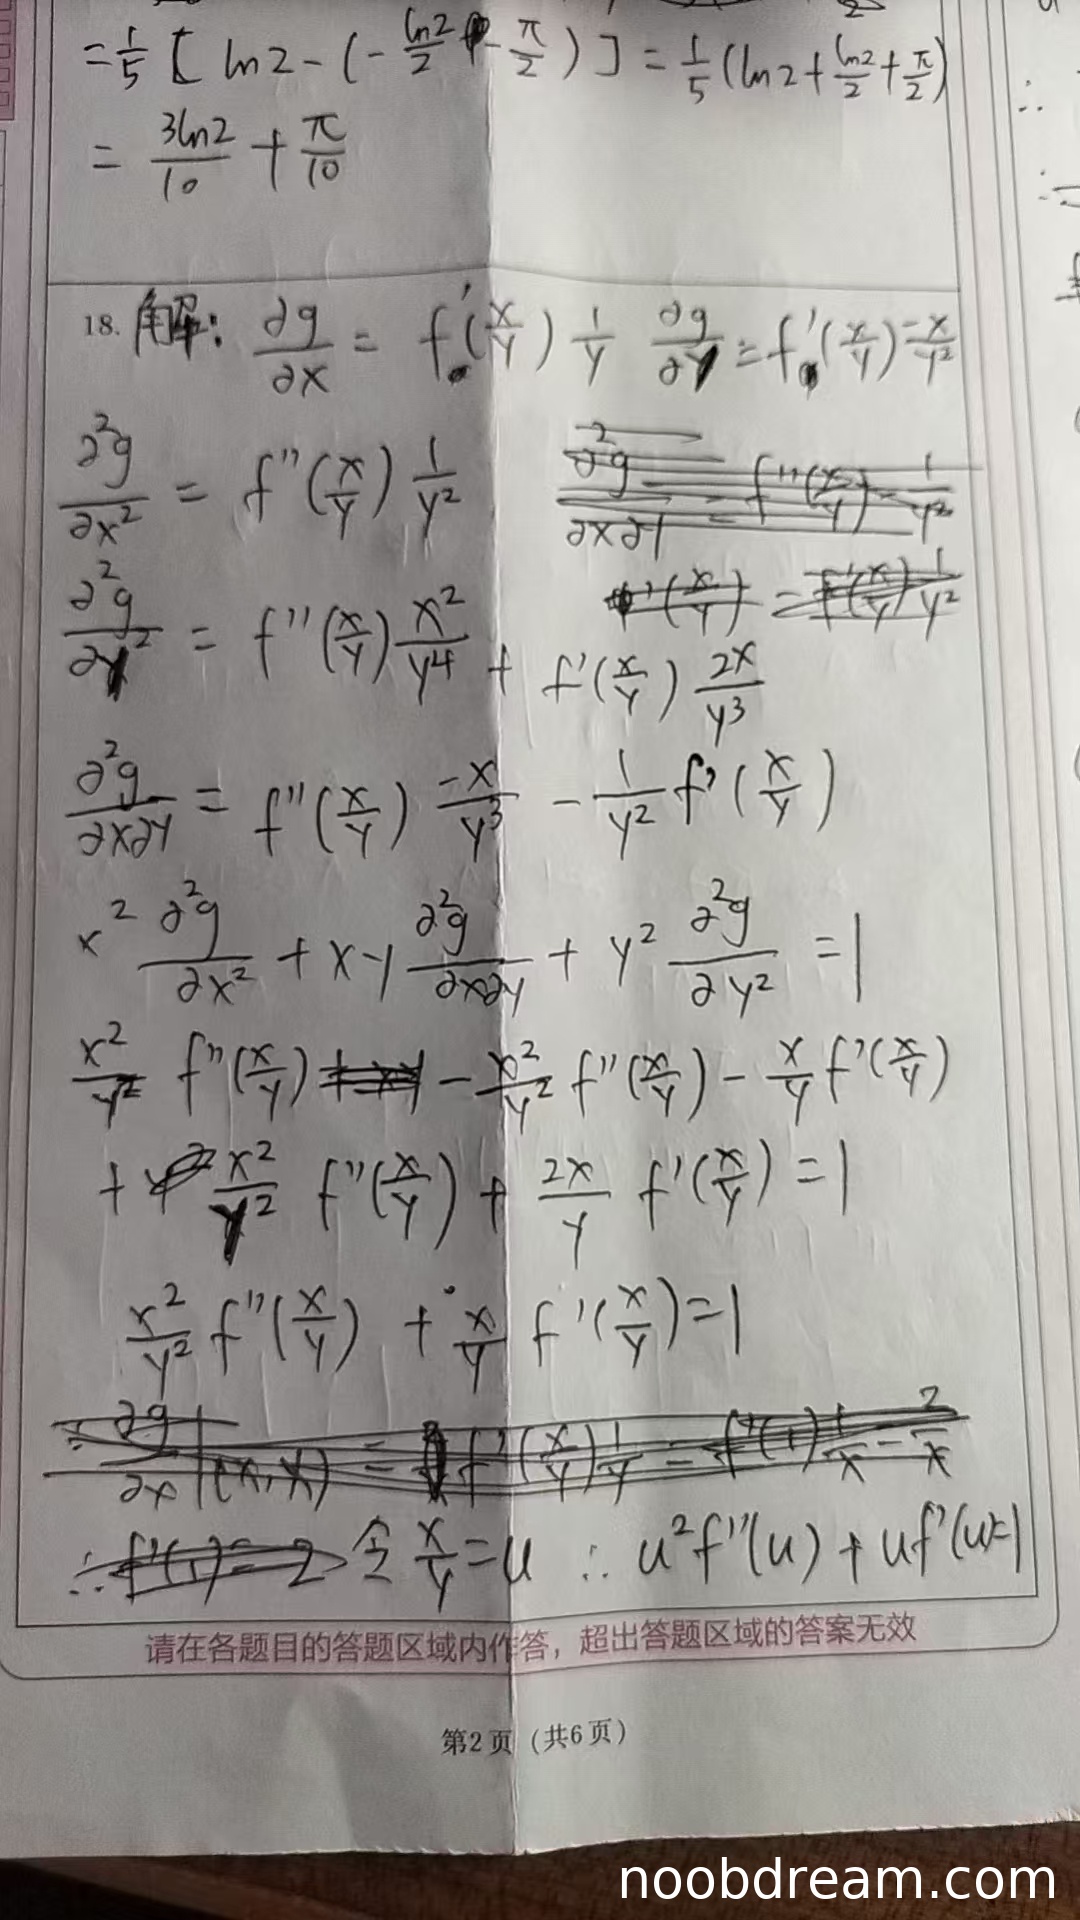 = 1/5 [ ln2 - (- ln2/2 - π/2) ] = 1/5 (ln2 + ln2/2 + π/2)
= 3ln2/10 + π/10
18. 解: ∂g/∂x = f'(x/y) 1/y   ∂g/∂y = f'(x/y) -x/y²
∂²g/∂x² = f''(x/y) 1/y²
∂²g/∂y² = f''(x/y) x²/y⁴ + f'(x/y) 2x/y³
∂²g/∂x∂y = f''(x/y) -x/y³ - 1/y² f'(x/y)
x² ∂²g/∂x² + xy ∂²g/∂x∂y + y² ∂²g/∂y² = 1
x²/y² f''(x/y) - x²/y² f''(x/y) - x/y f'(x/y)
+ x²/y² f''(x/y) + 2x/y f'(x/y) = 1
x²/y² f''(x/y) + x/y f'(x/y) = 1
∴ 令 x/y = u ∴ u²f''(u) + uf'(u) = 1
请在各题目的答题区域内作答，超出答题区域的答案无效
第2页（共6页）
noobdream.com